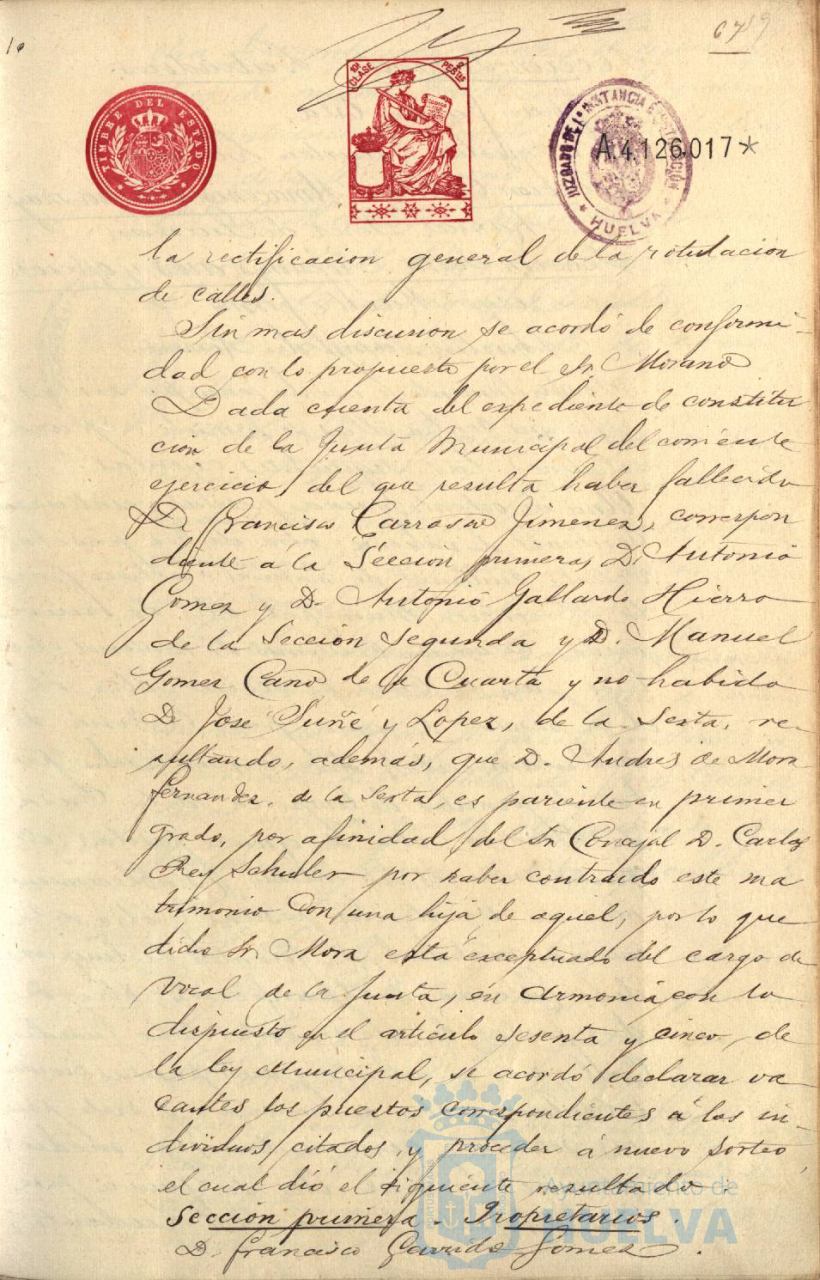 10
6719
TIMBRE DEL ESTADO
10ª CLASE 2 PESETAS
JUZGADO DE 1ª INSTANCIA E INSTRUCCIÓN
HUELVA
A4.126.017*
la rectificacion general de la rotulacion
de calles.
Sin mas discusion se acordó de conformi-
dad con lo propuesto por el Sr. Morano
Dada cuenta del expediente de constitu
cion de la Junta Municipal del corriente
ejercicio, del que resulta haber fallecido
D. Francisco Carrasco Jimenez, correspon
diente á la Sección primera, D. Antonio
Gomez y D. Antonio Gallardo Hierro
de la Sección Segunda y D. Manuel
Gomez Cano de la Cuarta y no habido
D. José Suñé y Lopez, de la Sexta, re-
sultando, además, que D. Andres de Mora
Fernandez, de la Sexta, es pariente en primer
grado, por afinidad del Sr. Concejal D. Carlos
Rey Schuler por haber contraido este ma
trimonio con una hija de aquel, por lo que
dicho Sr. Mora está exceptuado del cargo de
vocal de la Junta, en armonía con lo
dispuesto en el artículo sesenta y cinco, de
la ley Municipal, se acordó declarar va-
cantes los puestos correspondientes á los in-
dividuos citados y proceder á nuevo sorteo
el cual dió el siguiente resultado:
Sección primera. Propietarios.
D. Francisco Garrido Gomez.
Ayuntamiento de
HUELVA